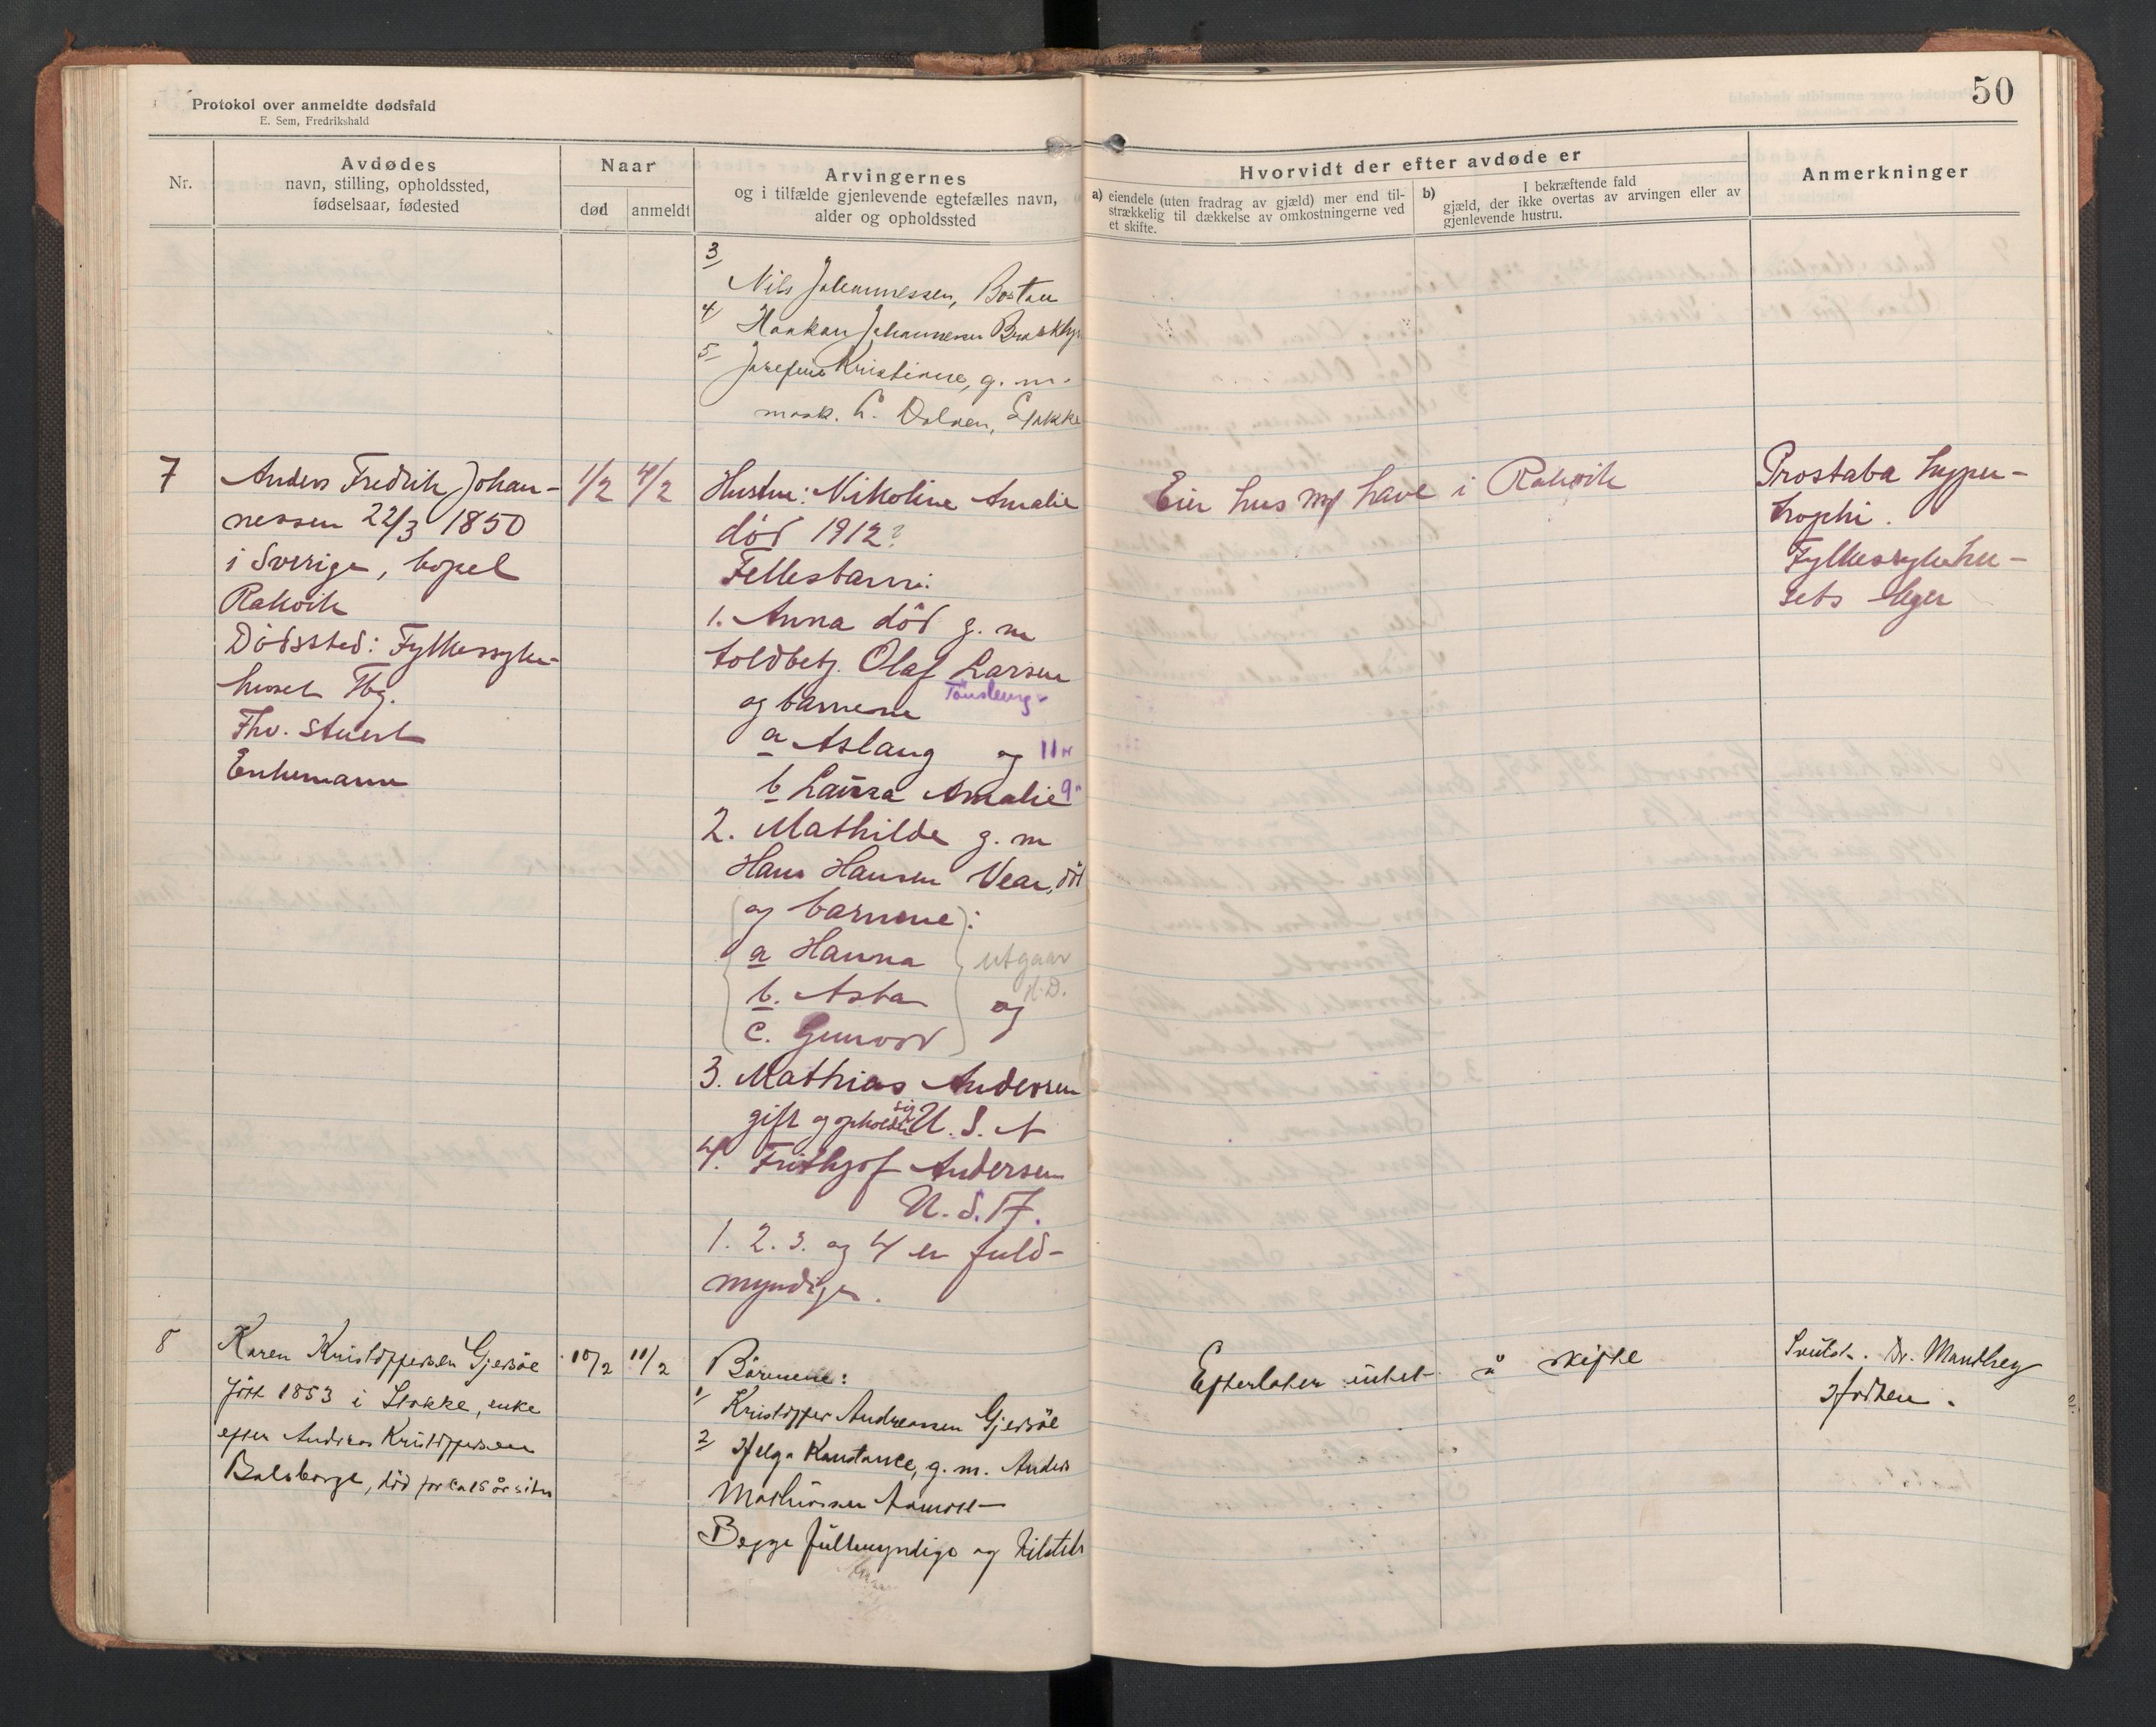 50
Protokol over anmeldte dødsfald
E. Sem, Fredrikshald
Nr.
Avdødes
navn, stilling, opholdssted,
fødselsaar, fødested
Naar
død
anmeldt
Arvingernes
og i tilfælde gjenlevende egtefælles navn,
alder og opholdssted
Hvorvidt der efter avdøde er
a) eiendele (uten fradrag av gjæld) mer end til-
strækkelig til dækkelse av omkostningerne ved
et skifte.
b) I bekræftende fald
gjæld, der ikke overtas av arvingen eller av
gjenlevende hustru.
Anmerkninger
3/
Nils Johannessen, Boston
4/ Haakon Johannessen
5/ Josefine Kristine, g. m.
mask. Stokke
7
Anders Fredrik Johan-
nessen 22/3 1850
i Sverige, bopel
Rakvik
Dødssted: Fylkessyke-
huset Tbg.
Fhv. stuert
Enkemann
1/2
4/2
Hustru: Nikoline Amalie
død 1912?
Fellesbarn:
1. Anna død g. m
toldbetj. Olaf Larsen
og barnene Tønsberg
a Aslaug og 11 år
b Laura Amalie 9"
2. Mathilde g. m
Hans Hansen Vear, død
og barnene:
a Hanna utgaar
b. Asta og
c. Gunvor
3. Mathias Andersen
gift og opholder sig U. S. A
4. Frithjof Andersen
U. S. A.
1. 2. 3. og 4 er fuld-
myndige.
Eier hus m/ have i Rakvik
Prostata hyper-
trophi.
Fylkessykehu-
sets leger
8
Karen Kristoffersen Gjersøe
født 1853 i Stokke, enke
efter Andreas Kristoffersen
død for ca 15 år siden
10/2
11/2
Børnene:
1/ Kristoffer Andreassen Gjersøe
2/ Helga Konstance, g. m. Anders
Mathiassen
Begge fullmyndige og tilstede
Efterlater intet å skifte
Dr. Manthey
Horten.